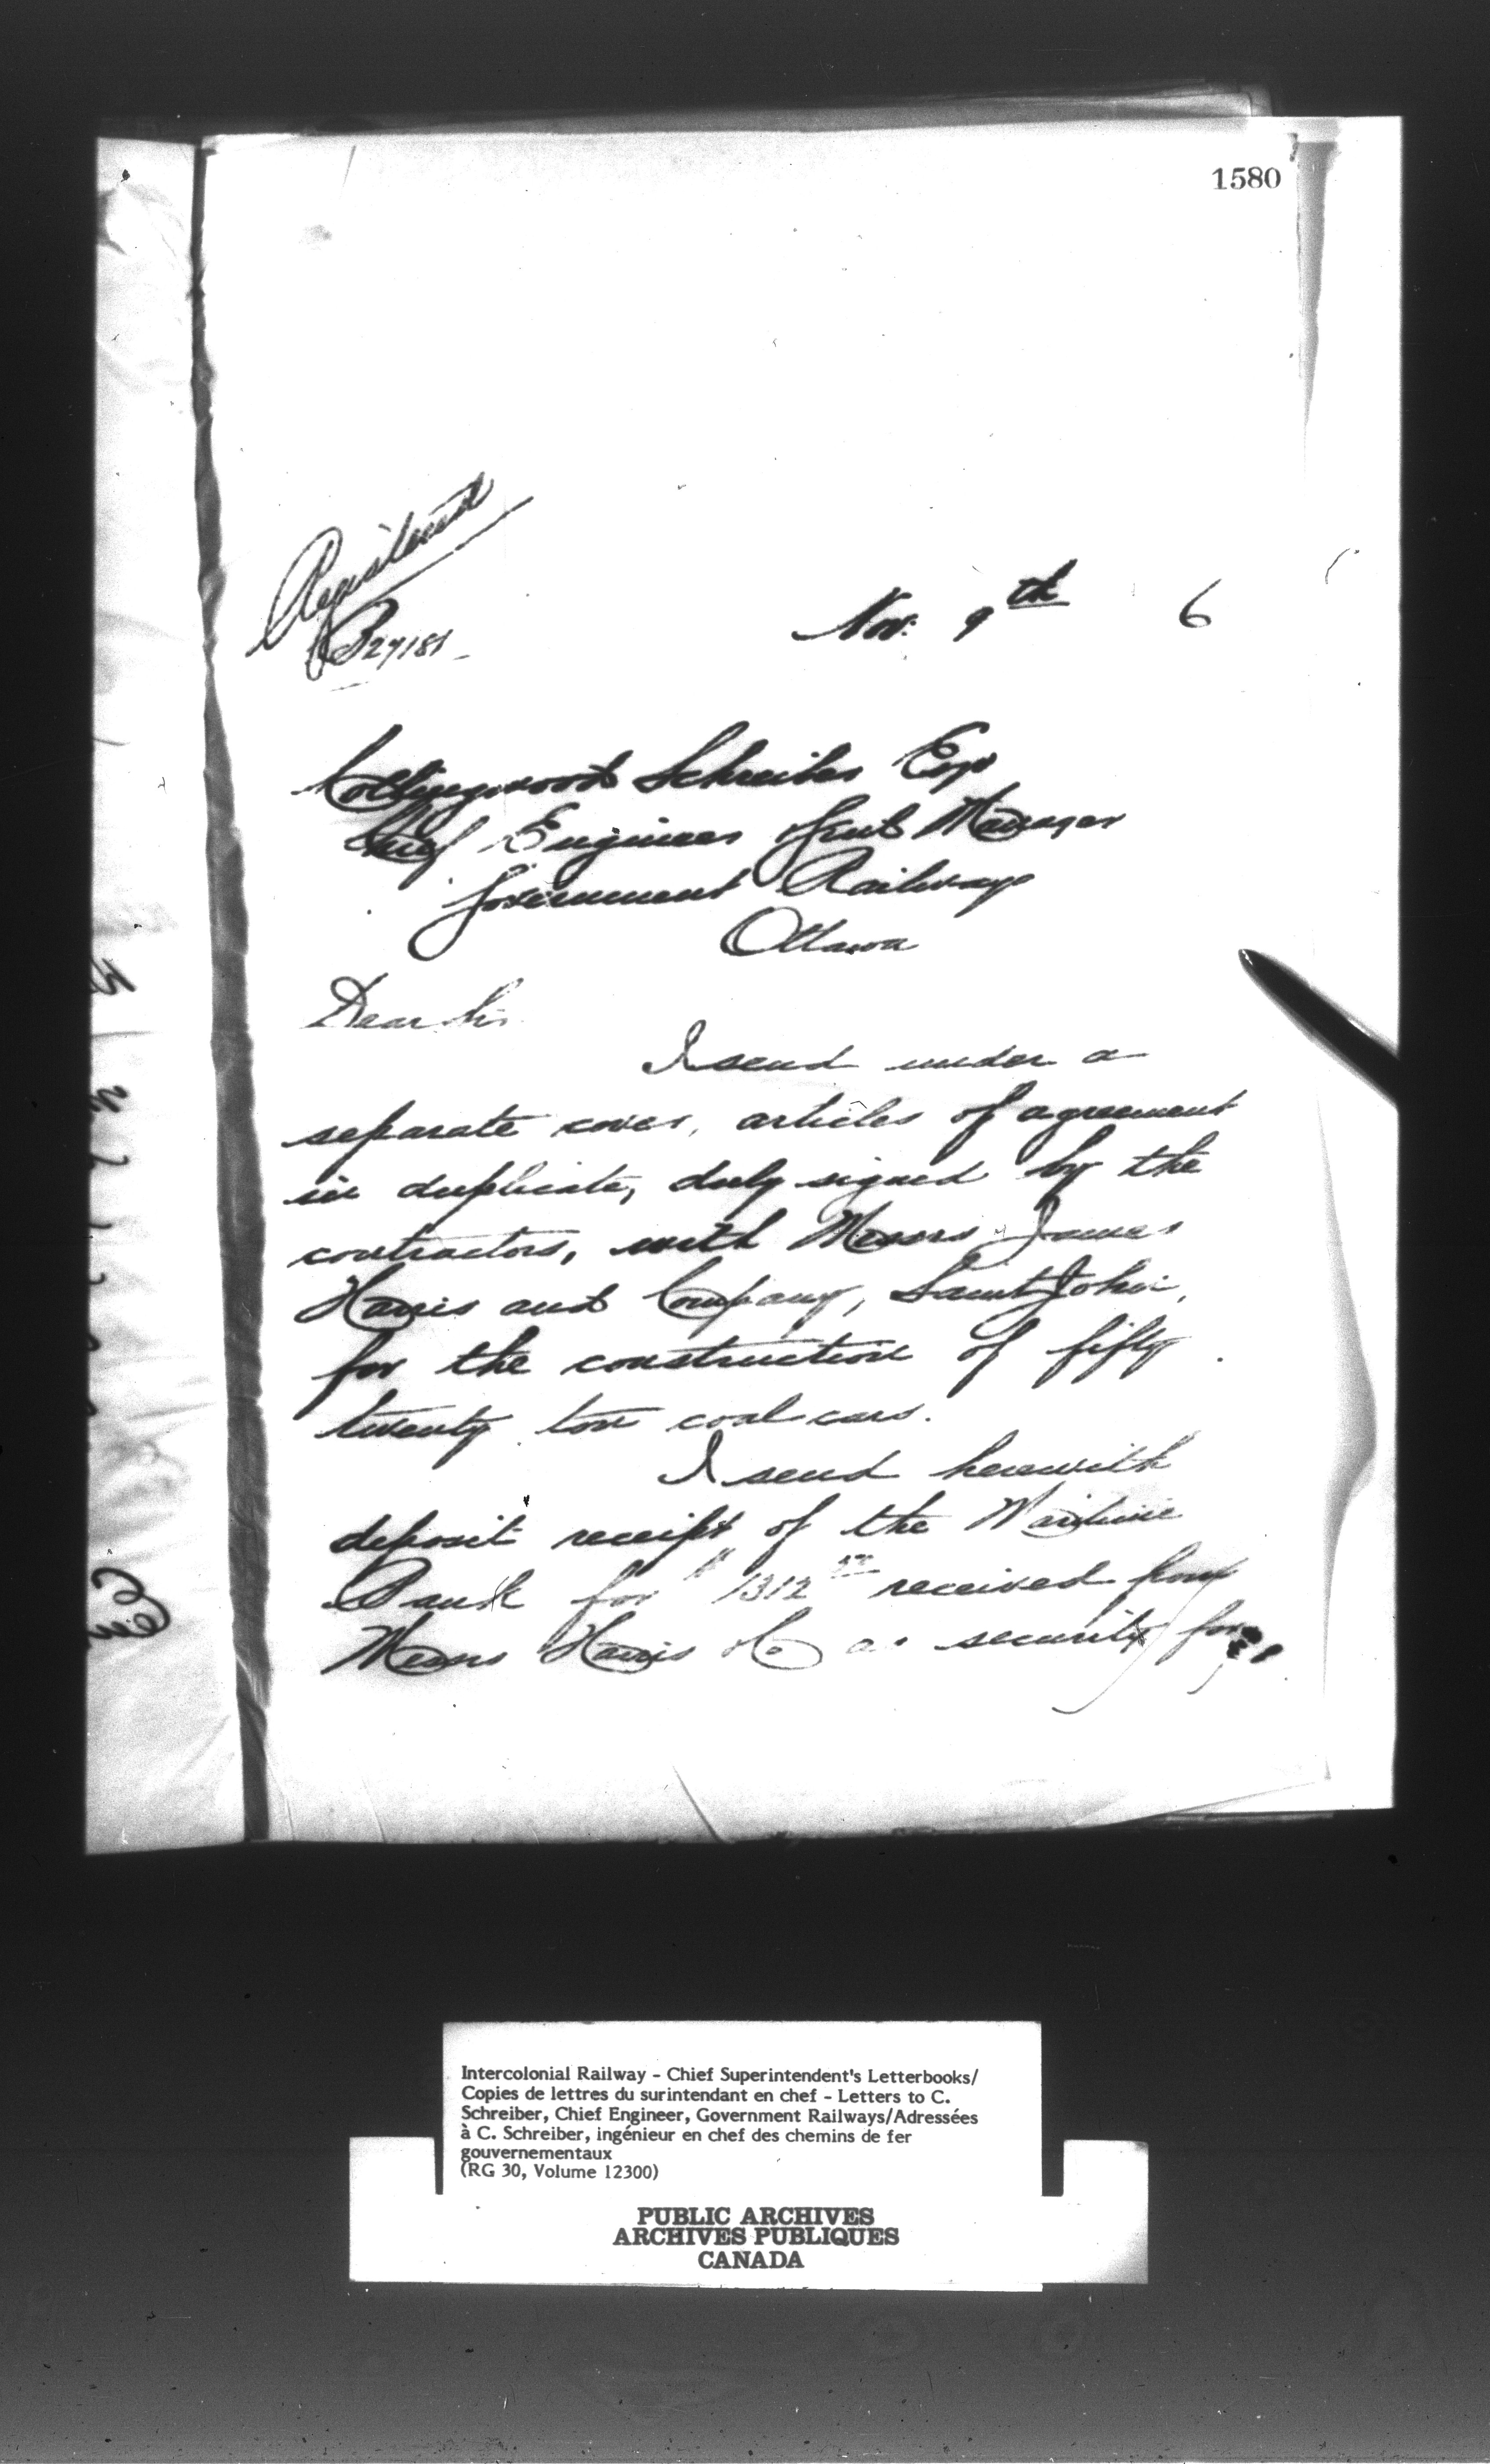 1580
Registered
B27181
Nov. 9th 6
Collingwood Schreiber Esqr
Chief Engineer & Genl Manager
Government Railways
Ottawa
Dear Sir
I send under a
separate cover, articles of agreement
in duplicate, duly signed by the
contractors, with Messrs James
Harris and Company, Saint John,
for the construction of fifty
twenty ton coal cars.
I send herewith
deposit receipt of the Maritime
Bank for $1312 received from
Messrs Harris & Co as security for
Intercolonial Railway - Chief Superintendent's Letterbooks/
Copies de lettres du surintendant en chef - Letters to C.
Schreiber, Chief Engineer, Government Railways/Adressées
à C. Schreiber, ingénieur en chef des chemins de fer
gouvernementaux
(RG 30, Volume 12300)
PUBLIC ARCHIVES
ARCHIVES PUBLIQUES
CANADA